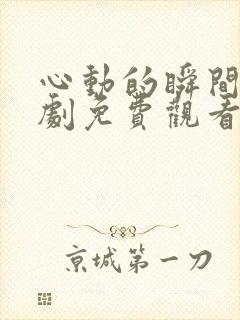 心動的瞬間
劇免費觀看
京城第一刀